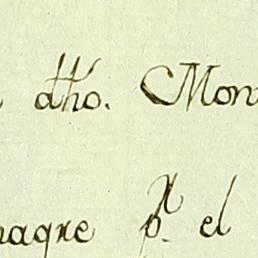 dho. Mon
magre p.ª el